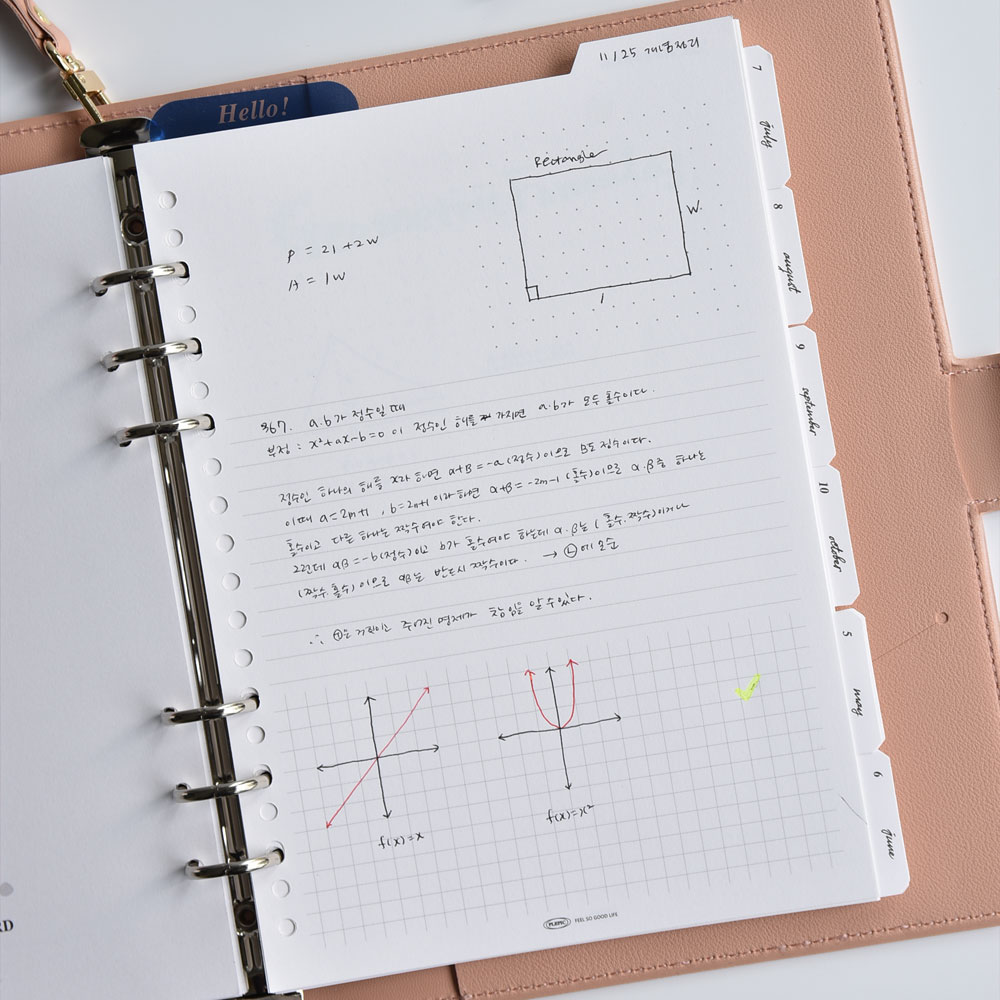 Hello!
11/25 개념정리
Rectangle
W
l
P = 2l + 2w
A = lw
367. a.b가 정수일 때
부정 : x²+ax-b=0 이 정수인 해를 가지면 a.b가 모두 홀수이다.
정수인 하나의 해를 α라 하면 α+β=-a(정수)이므로 β도 정수이다.
이때 a=2m+1, b=2n+1 이라 하면 α+β=-2m-1 (홀수)이므로 α.β중 하나는
홀수이고 다른 하나는 짝수여야 한다.
그런데 αβ=-b(정수)이고 b가 홀수여야 하는데 α.β는 (홀수.짝수)이거나
(짝수.홀수)이므로 αβ는 반드시 짝수이다. → ㉡에 모순
∴ ㉠은 거짓이고 주어진 명제가 참임을 알 수 있다.
f(x)=x
f(x)=x²
PLEPIC FEEL SO GOOD LIFE
7 july
8 august
9 september
10 october
5 may
6 june
RD